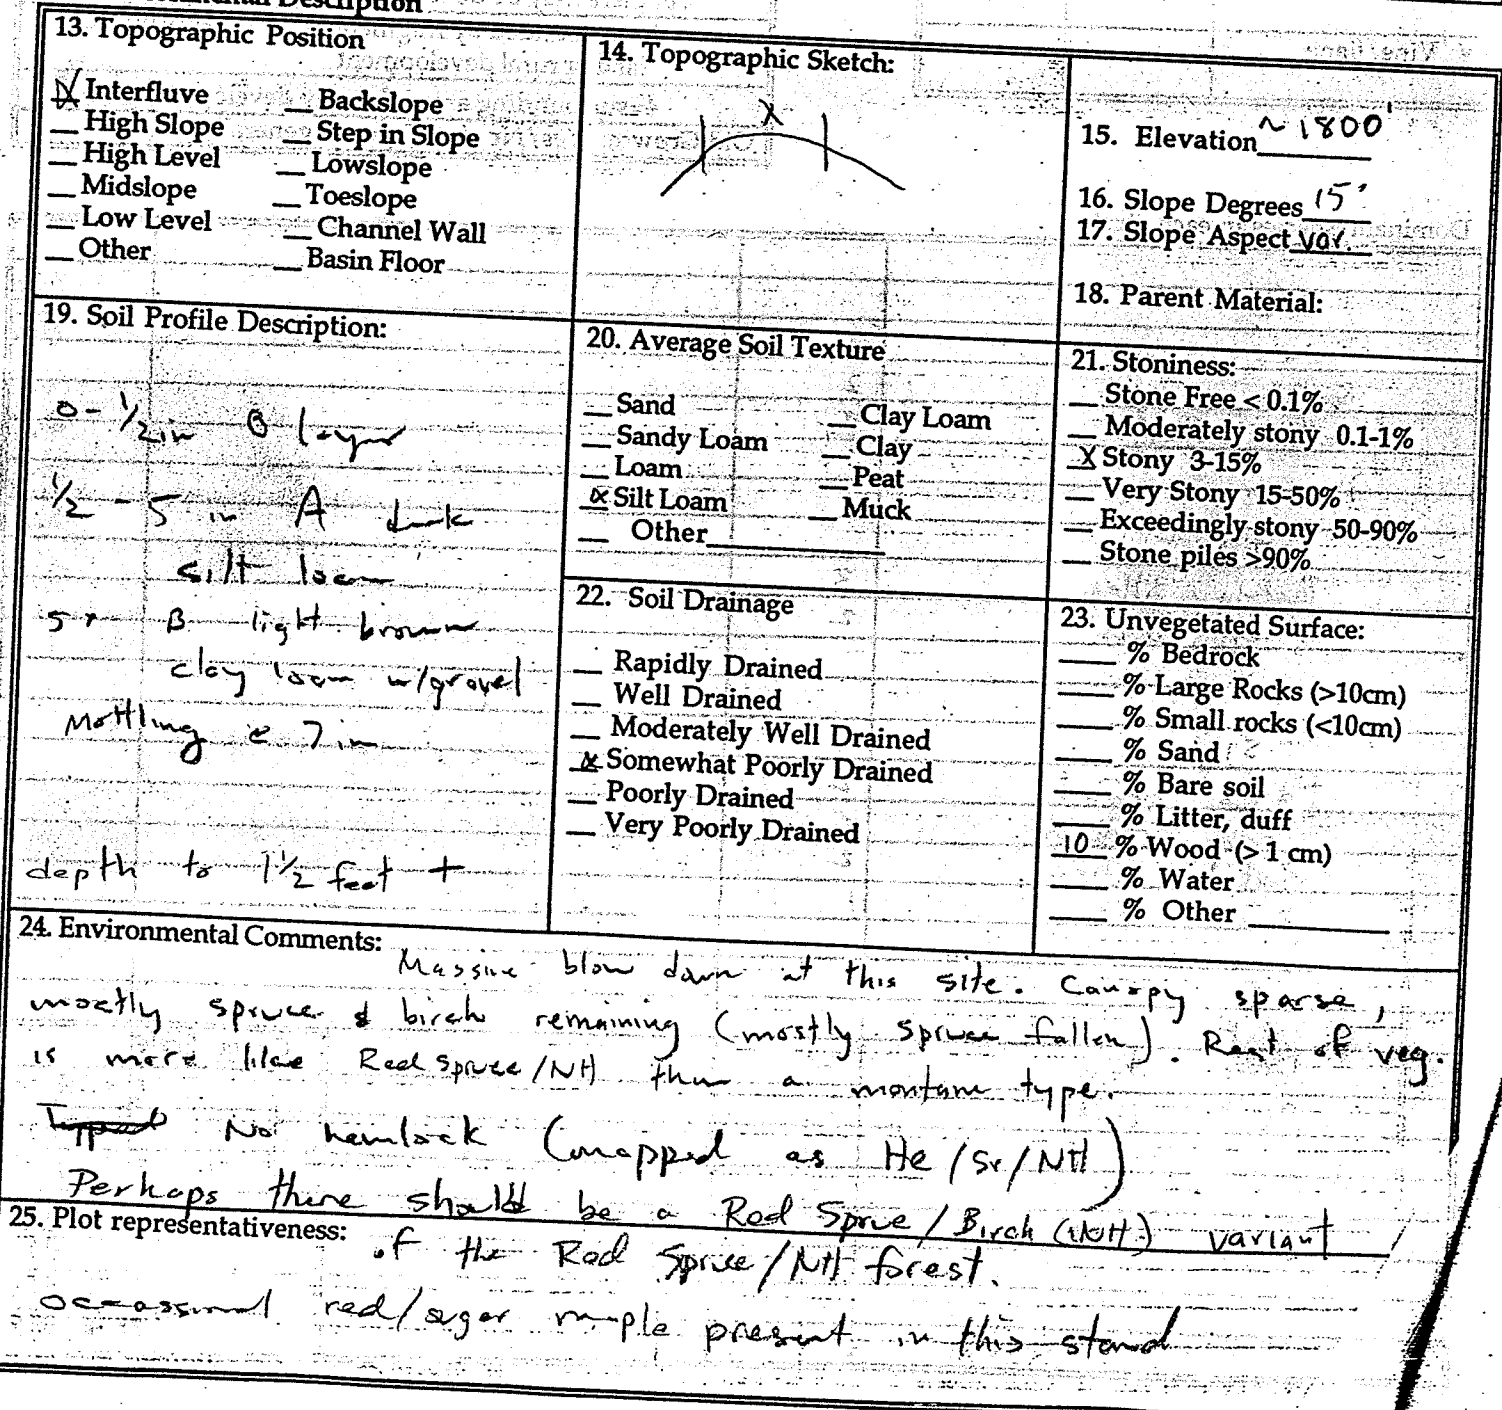 Description
13. Topographic Position
X Interfluve __ Backslope
__ High Slope __ Step in Slope
__ High Level __ Lowslope
__ Midslope __ Toeslope
__ Low Level __ Channel Wall
__ Other __ Basin Floor
14. Topographic Sketch:
X
15. Elevation ~1800'
16. Slope Degrees 15°
17. Slope Aspect var.
18. Parent Material:
19. Soil Profile Description:
0 - 1/2 in O layer
1/2 - 5 in A dark
silt loam
5+ B light brown
clay loam w/gravel
Mottling @ 7 in
depth to 1 1/2 feet +
20. Average Soil Texture
__ Sand __ Clay Loam
__ Sandy Loam __ Clay
__ Loam __ Peat
X Silt Loam __ Muck
__ Other
21. Stoniness:
__ Stone Free < 0.1%
__ Moderately stony 0.1-1%
X Stony 3-15%
__ Very Stony 15-50%
__ Exceedingly stony 50-90%
__ Stone piles >90%
22. Soil Drainage
__ Rapidly Drained
__ Well Drained
__ Moderately Well Drained
X Somewhat Poorly Drained
__ Poorly Drained
__ Very Poorly Drained
23. Unvegetated Surface:
____ % Bedrock
____ % Large Rocks (>10cm)
____ % Small rocks (<10cm)
____ % Sand
____ % Bare soil
____ % Litter, duff
10 % Wood (> 1 cm)
____ % Water
____ % Other
24. Environmental Comments: Massive blow down at this site. Canopy sparse,
mostly spruce & birch remaining (mostly spruce fallen). Rest of veg.
is more like Red Spruce/NH than a montane type.
No hemlock (mapped as He/Sr/NH)
Perhaps there should be a Red Sprue/Birch (NH) variant
25. Plot representativeness: of the Red Spruce/NH forest.
occassional red/sugar maple present in this stand